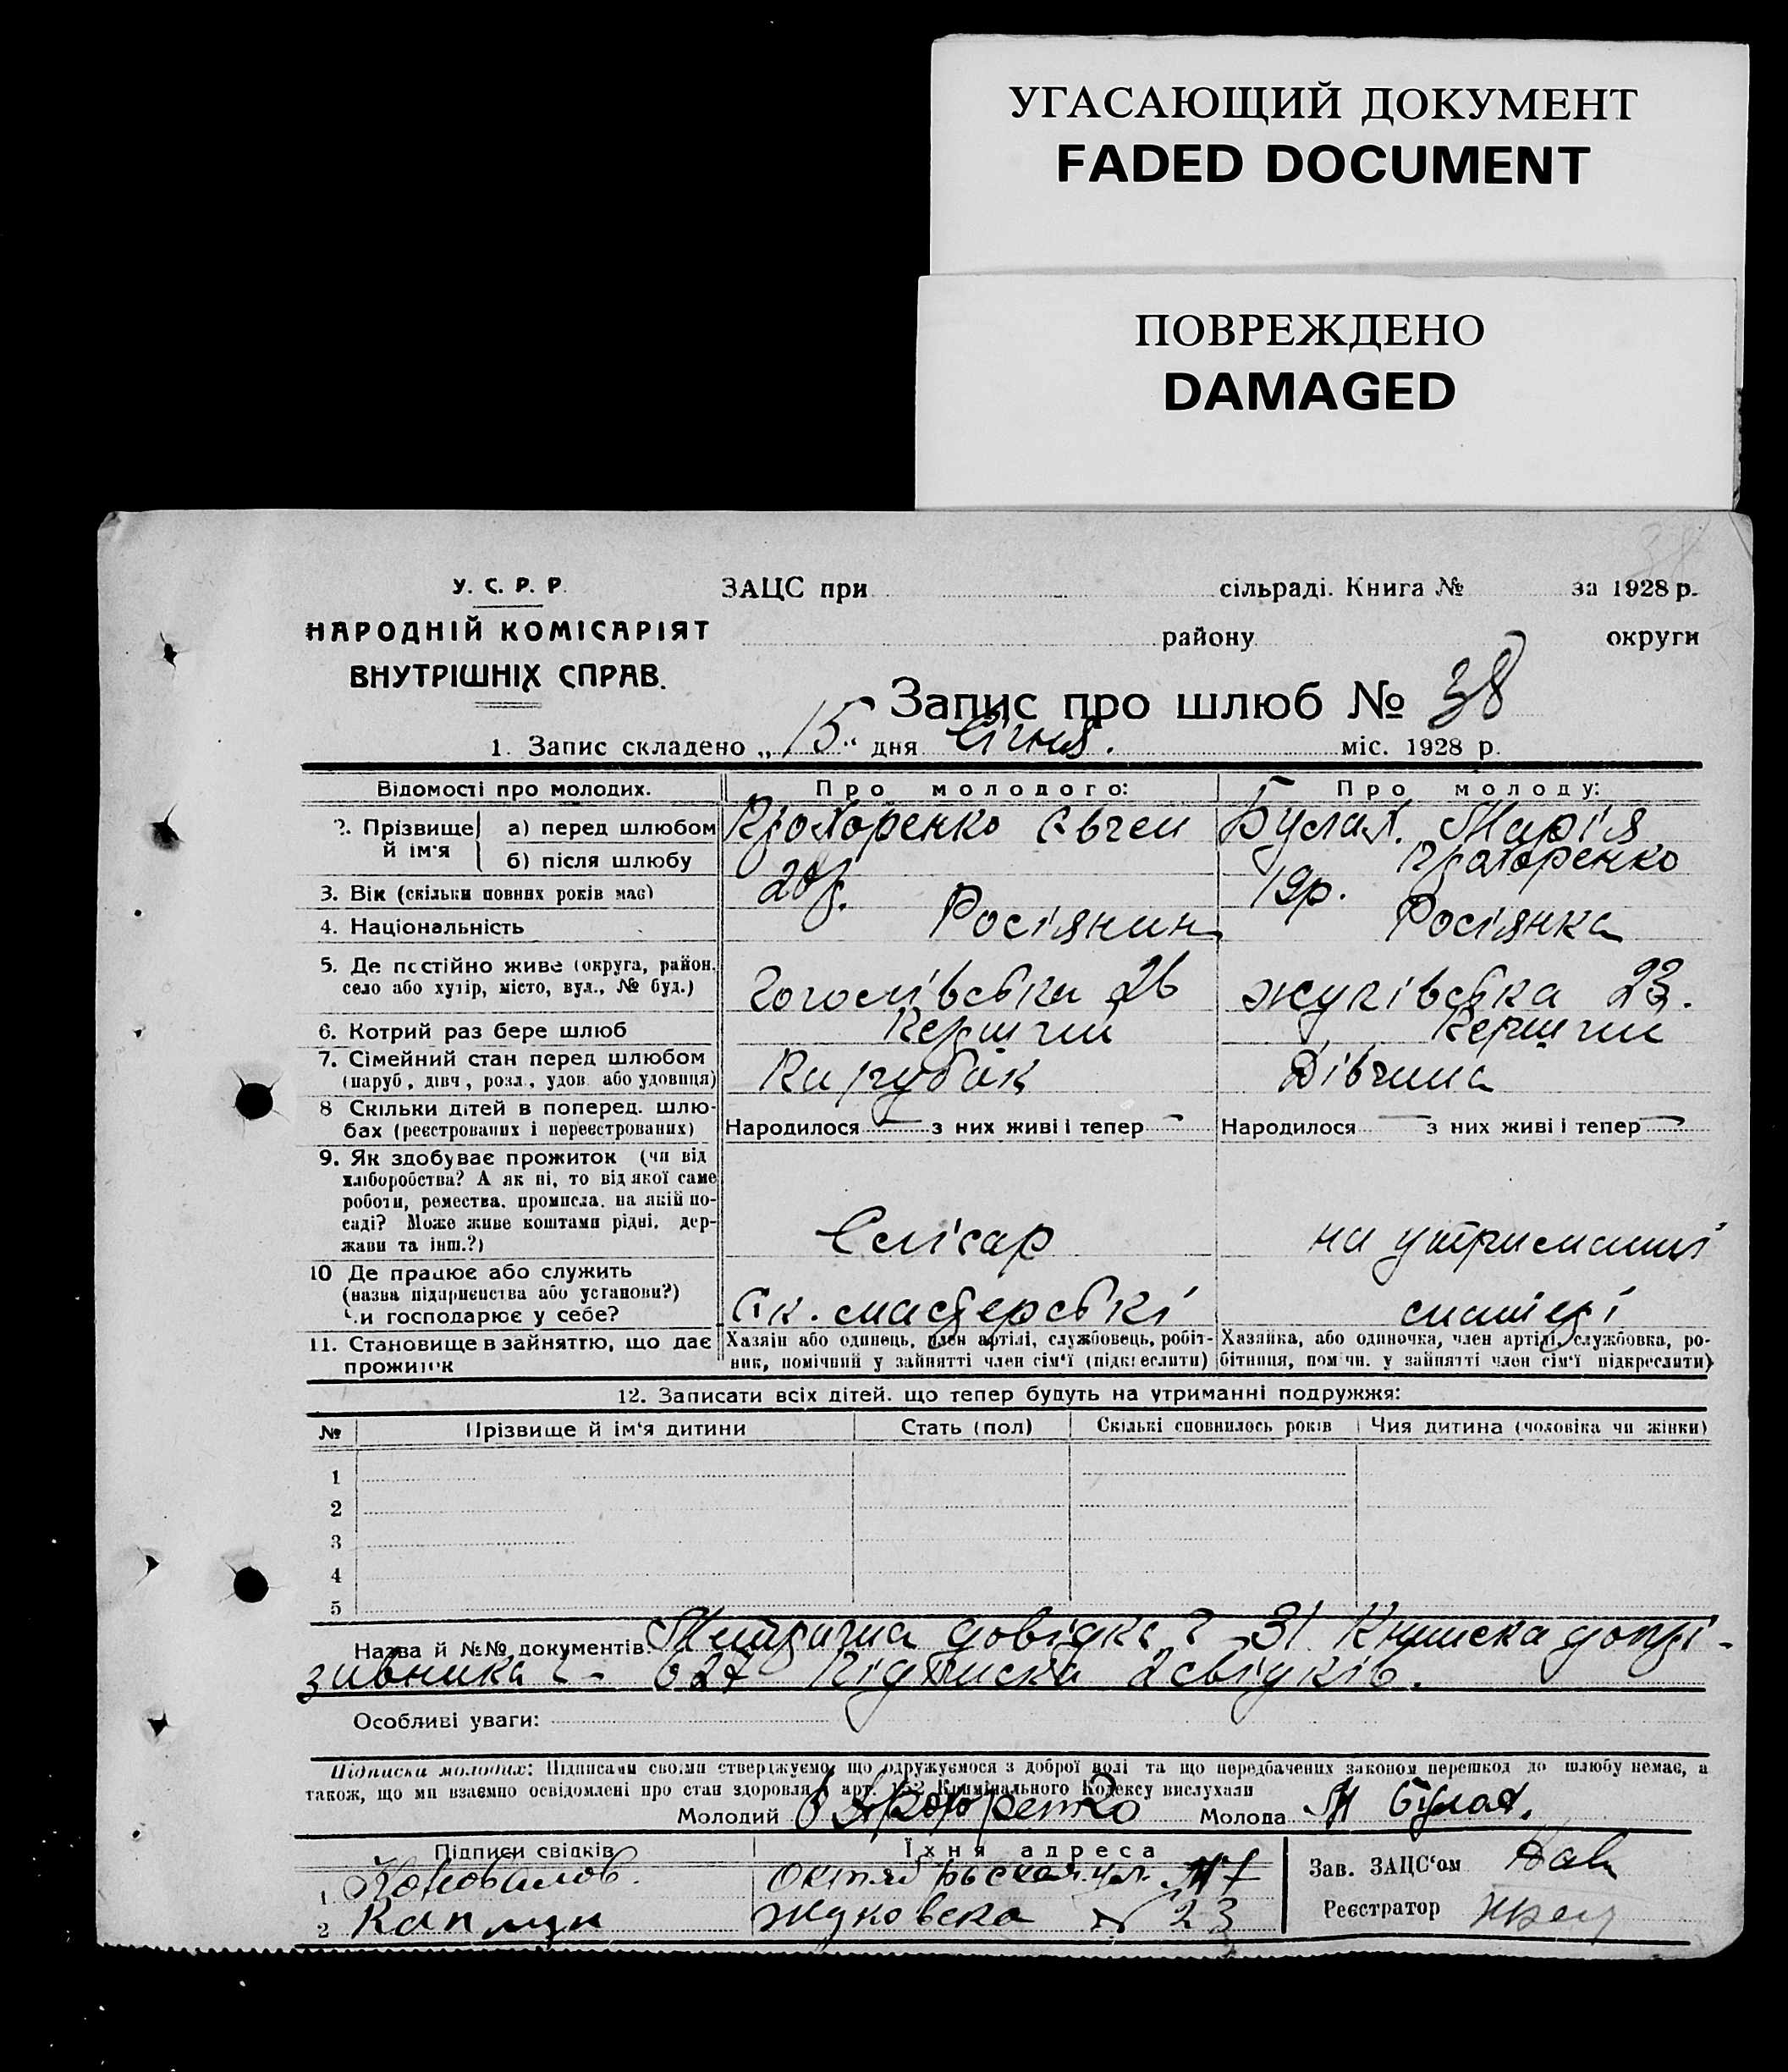 УГАСАЮЩИЙ ДОКУМЕНТ
FADED DOCUMENT
ПОВРЕЖДЕНО
DAMAGED
38
У. С. Р. Р.
НАРОДНІЙ КОМІСАРІЯТ
ВНУТРІШНІХ СПРАВ.
ЗАЦС при сільраді. Книга № за 1928 р.
району округи
Запис про шлюб № 38
1. Запис складено „15“ дня Січня. міс. 1928 р.
Відомості про молодих. Про молодого: Про молоду:
2. Прізвище й ім'я а) перед шлюбом Прохоренко Євген Булах. Марія
б) після шлюбу Прохоренко
3. Вік (скільки повних років має) 20р. 19р.
4. Національність Росіянин Росіянка
5. Де постійно живе (округа, район, село або хутір, місто, вул., № буд.) Гоголівська 26 Жуківська 23.
6. Котрий раз бере шлюб Перший Перший
7. Сімейний стан перед шлюбом (паруб., дівч., розл., удов. або удовиця) Парубок Дівчина
8 Скільки дітей в поперед. шлюбах (реєстрованих і нереєстрованих) Народилося — з них живі і тепер — Народилося — з них живі і тепер —
9. Як здобуває прожиток (чи від
хліборобства? А як ні, то від якої саме
роботи, ремества, промисла, на якій по-
саді? Може живе коштами рідні, дер-
жави та інш.?) Слісар на утриманні
10 Де працює або служить
(назва підприємства або установи?)
Чи господарює у себе? майстерські матері
11. Становище в зайняттю, що дає прожиток Хазяїн або одинець, член артілі, службовець, робіт-
ник, помічний у зайнятті член сім'ї (підкреслити) Хазяйка, або одиночка, член артілі, службовка, ро-
бітниця, поміч. у зайнятті член сім'ї підкреслити)
12. Записати всіх дітей, що тепер будуть на утриманні подружжя:
№ Прізвище й ім'я дитини Стать (пол) Скількі сповнилось років Чия дитина (чоловіка чи жінки)
1
2
3
4
5
Назва й №№ документів. Метрична довідка 31 Книжка допрі-
зивника 627 Підписка 2 свідків.
Особливі уваги:
Підписка молодих: Підписами своїми стверджуємо, що одружуємося з доброї волі та що передбачених законом перешкод до шлюбу немає, а
також, що ми взаємно освідомлені про стан здоровля й арт. 152 Кримінального Кодексу вислухали
Молодий Прохоренко Молода М Булах.
Підписи свідків Їхня адреса
1 Коновалов. Октябрьская ул. №7
2 Каплун Жуковска № 23
Зав. ЗАЦС'ом
Реєстратор